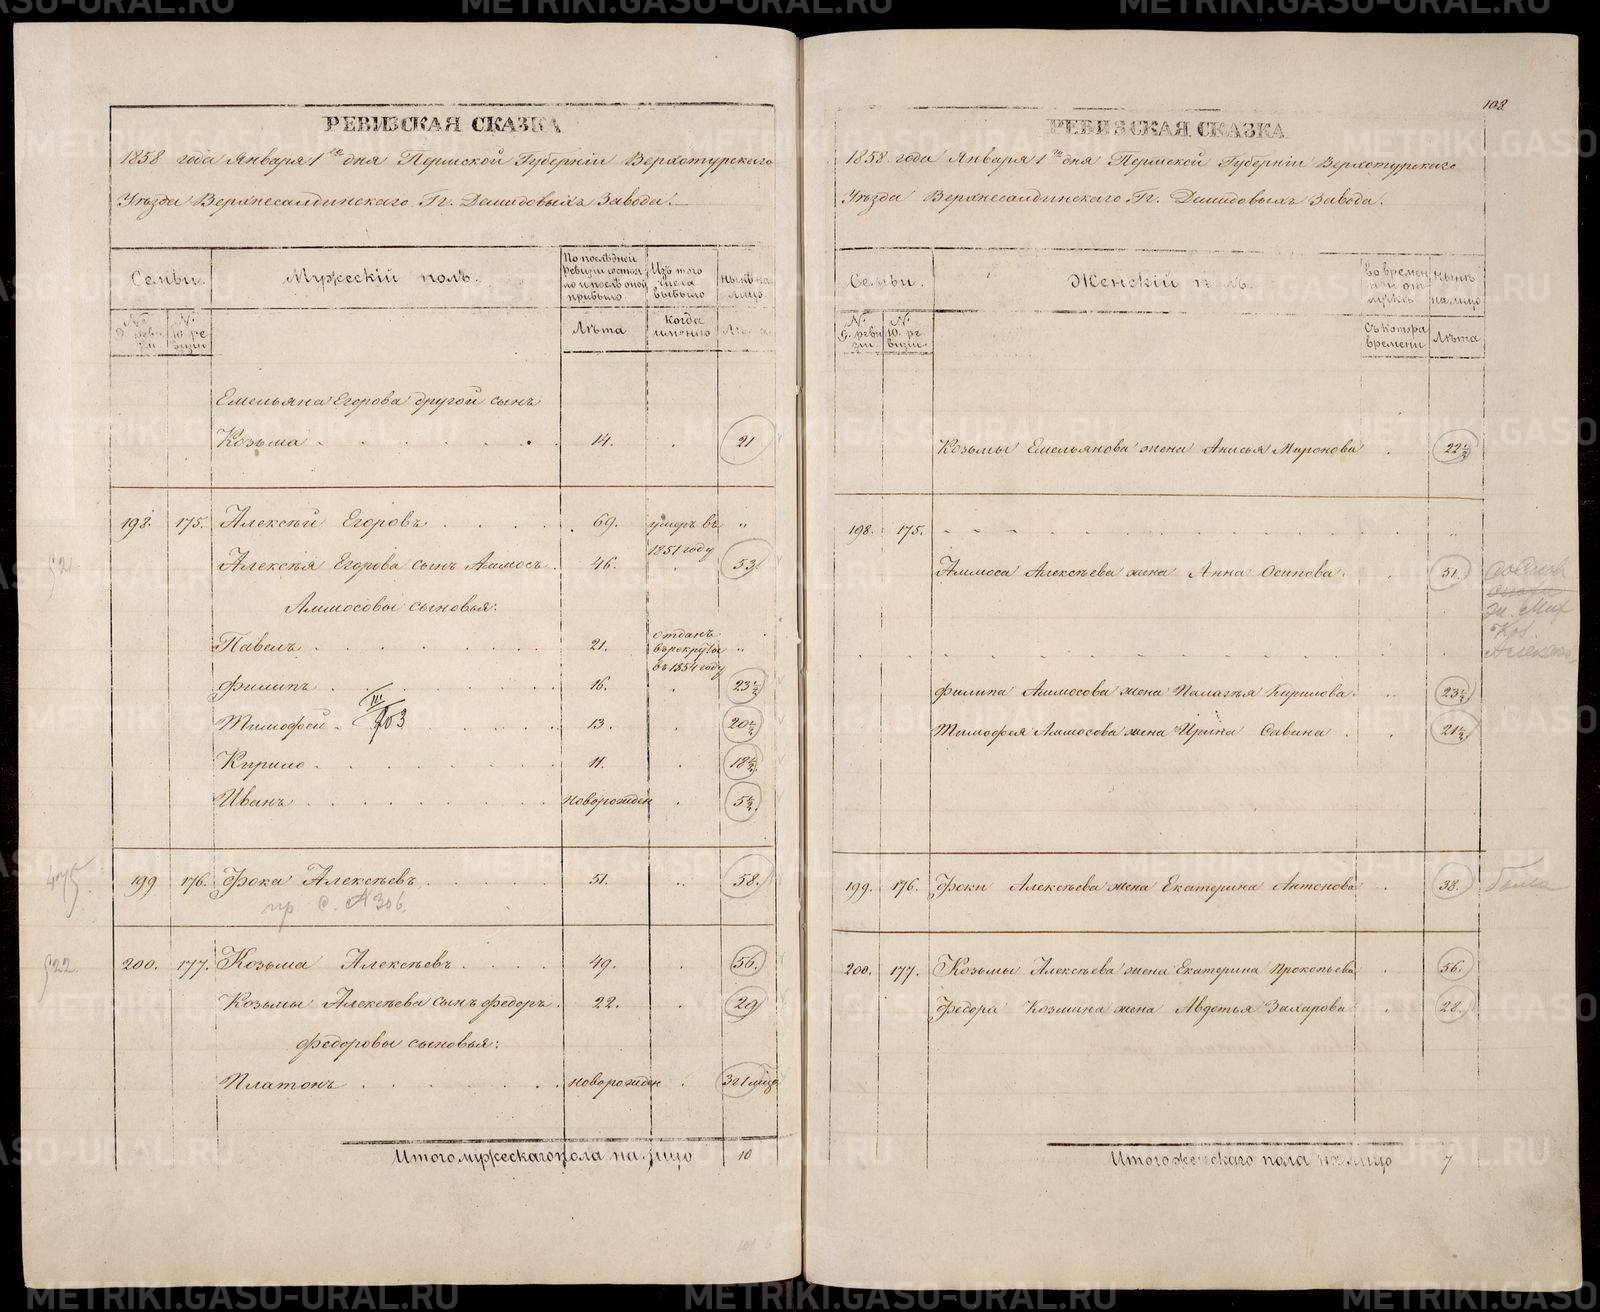 РЕВИЗСКАЯ СКАЗКА
1858 года Января 1го дня Пермской Губерніи Верхотурскаго
Уѣзда Верхнесалдинскаго Гг. Демидовыхъ Завода.
Семьи. Мужескій полъ. По послѣдней ревизіи состояло и послѣ оной прибыло Изъ того числа выбыло Нынѣ на лицо
№ 9. ревизіи № 10. ревизіи Лѣта Когда именно Лѣта
Емельяна Егорова другой сынъ
Козьма 14. 21
198. 175. Алексѣй Егоровъ 69. умеръ въ 1851 году „
Алексѣя Егорова сынъ Аммосъ. 46. 53
Аммосовы сыновья:
Павелъ 21. отданъ въ рекруты въ 1854 году „
Филипъ 16. 23½
Тимофей 13. 20½
Кирило 11. 18½
Иванъ новорожден 5½
199 176. Фока Алексѣевъ 51. 58.
200. 177. Козьма Алексѣевъ 49. 56.
Козьмы Алексѣева сынъ Федоръ. 22. 29
Федоровы сыновья:
Платонъ новорожден
Итого мужескаго пола на лицо 10
108
РЕВИЗСКАЯ СКАЗКА
1858 года Января 1го дня Пермской Губерніи Верхотурскаго
Уѣзда Верхнесалдинскаго Гг. Демидовыхъ Завода.
Семьи. Женскій полъ. Во временной отлучкѣ Нынѣ на лицо
№ 9. ревизіи № 10. ревизіи Съ котора времени Лѣта
Козьмы Емельянова жена Анисья Миронова 22½
198. 175.
Аммоса Алексѣева жена Анна Осипова. 51.
Филипа Аммосова жена Палагѣя Кирилова. 23½
Тимофея Аммосова жена Ирина Савина 21½
199. 176. Фоки Алексѣева жена Екатерина Антонова 38.
200. 177. Козьмы Алексѣева жена Екатерина Прокопьева 56.
Федора Козмина жена Авдотья Захарова 28.
Итого женскаго пола на лицо 7
METRIKI.GASO-URAL.RU